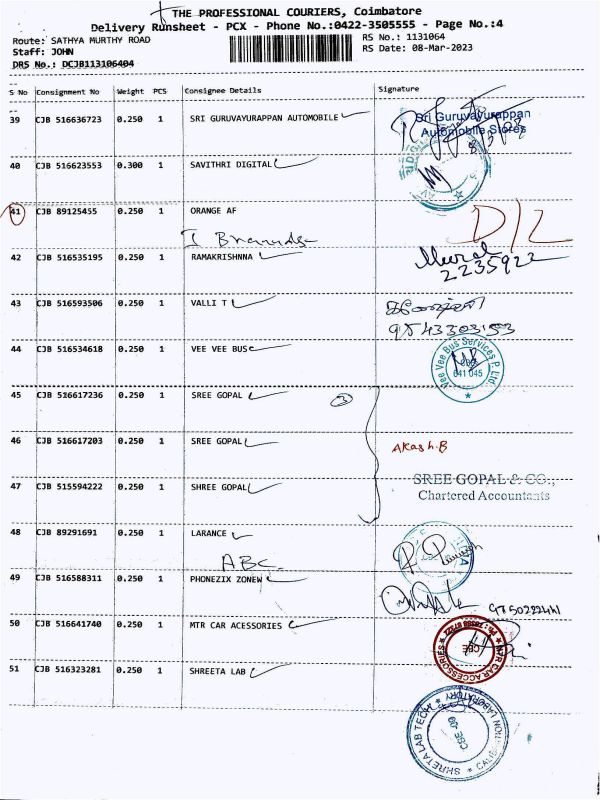 THE PROFESSIONAL COURIERS, Coimbatore
Delivery Runsheet - PCX - Phone No.:0422-3505555 - Page No.:4
Route: SATHYA MURTHY ROAD RS No.: 1131064
Staff: JOHN RS Date: 08-Mar-2023
DRS No.: DCJB113106404
S No Consignment No Weight PCS Consignee Details Signature
39 CJB 516636723 0.250 1 SRI GURUVAYURAPPAN AUTOMOBILE Sri Guruvayurappan
Automobile Stores
40 CJB 516623553 0.300 1 SAVITHRI DIGITAL
41 CJB 89125455 0.250 1 ORANGE AF D/L
42 CJB 516535195 0.250 1 RAMAKRISHNNA
2235922
43 CJB 516593506 0.250 1 VALLI T
9543303153
44 CJB 516534618 0.250 1 VEE VEE BUS Vee Vee Bus Services P. Ltd
641 045
45 CJB 516617236 0.250 1 SREE GOPAL 3
46 CJB 516617203 0.250 1 SREE GOPAL Akash.B
47 CJB 515594222 0.250 1 SHREE GOPAL SREE GOPAL & CO.,
Chartered Accountants
48 CJB 89291691 0.250 1 LARANCE
ABC
49 CJB 516588311 0.250 1 PHONEZIX ZONEW
50 CJB 516641740 0.250 1 MTR CAR ACESSORIES CAR ACCESSORIES
CBE
51 CJB 516323281 0.250 1 SHREETA LAB
SHRETA LAB TECH
CBE